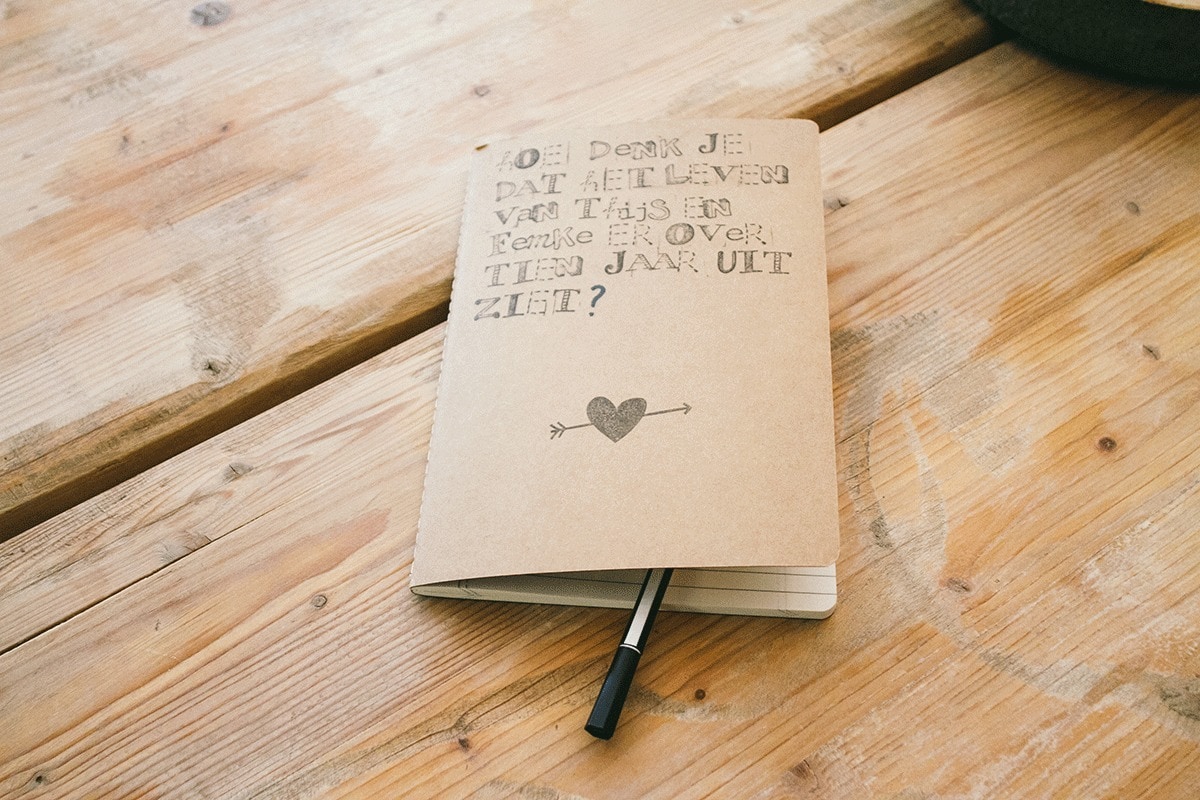 hOE DeNK JE
DAT hET LEVEN
VaN ThijS EN
FemKe ER OVeR
TIEN JAAR UIT
ZIET?